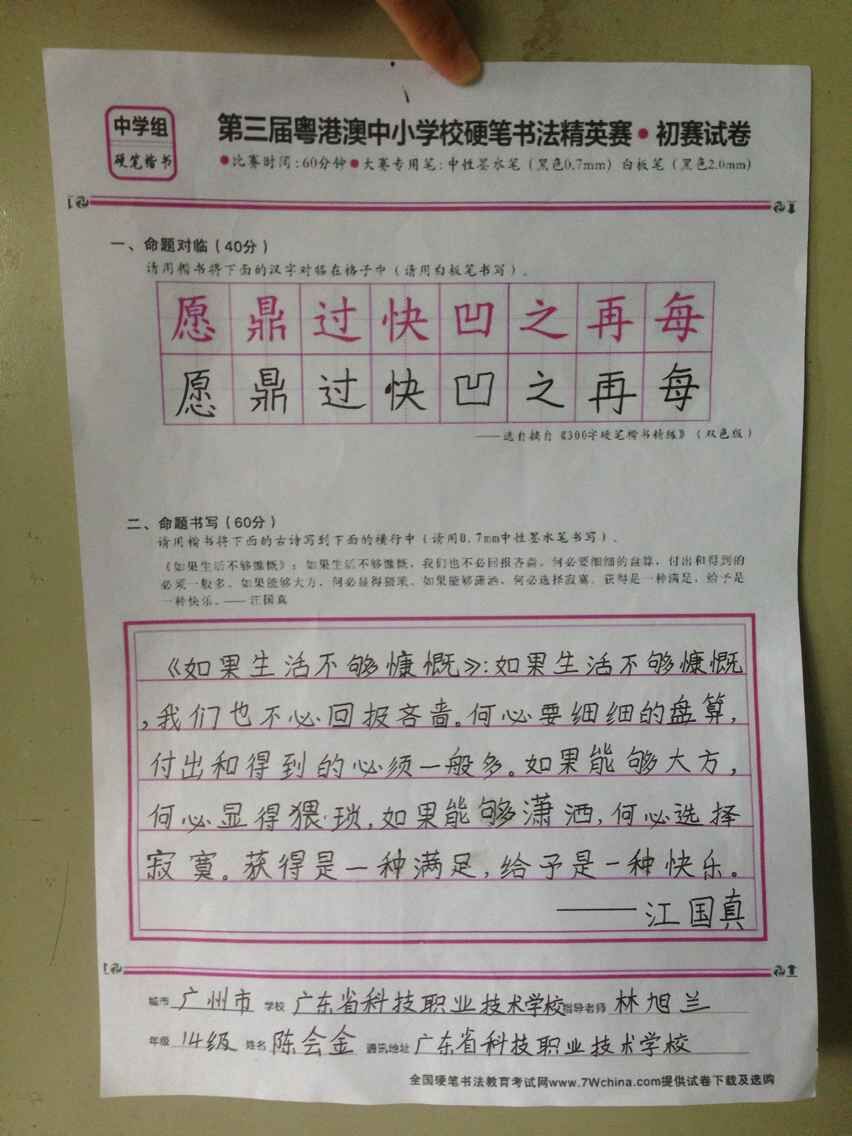 中学组
硬笔楷书
第三届粤港澳中小学校硬笔书法精英赛•初赛试卷
●比赛时间:60分钟●大赛专用笔:中性墨水笔(黑色0.7mm)白板笔(黑色2.0mm)
一、命题对临(40分)
请用楷书将下面的汉字对临在格子中(请用白板笔书写)。
愿鼎过快凹之再每
愿鼎过快凹之再每
——选自楼自《300字硬笔楷书精练》(双色版)
二、命题书写(60分)
请用楷书将下面的古诗写到下面的横行中(请用0.7mm中性墨水笔书写)。
《如果生活不够慷慨》:如果生活不够慷慨,我们也不必回报吝啬。何必要细细的盘算,付出和得到的
必须一般多。如果能够大方,何必显得猥琐。如果能够潇洒,何必选择寂寞。获得是一种满足,给予是
一种快乐。——江国真
《如果生活不够慷慨》:如果生活不够慷慨
,我们也不必回报吝啬。何必要细细的盘算,
付出和得到的必须一般多。如果能够大方,
何必显得猥琐,如果能够潇洒,何必选择
寂寞。获得是一种满足,给予是一种快乐。
——江国真
城市 广州市 学校 广东省科技职业技术学校 指导老师 林旭兰
年级 14级 姓名 陈会金 通讯地址 广东省科技职业技术学校
全国硬笔书法教育考试网www.7Wchina.com提供试卷下载及选购